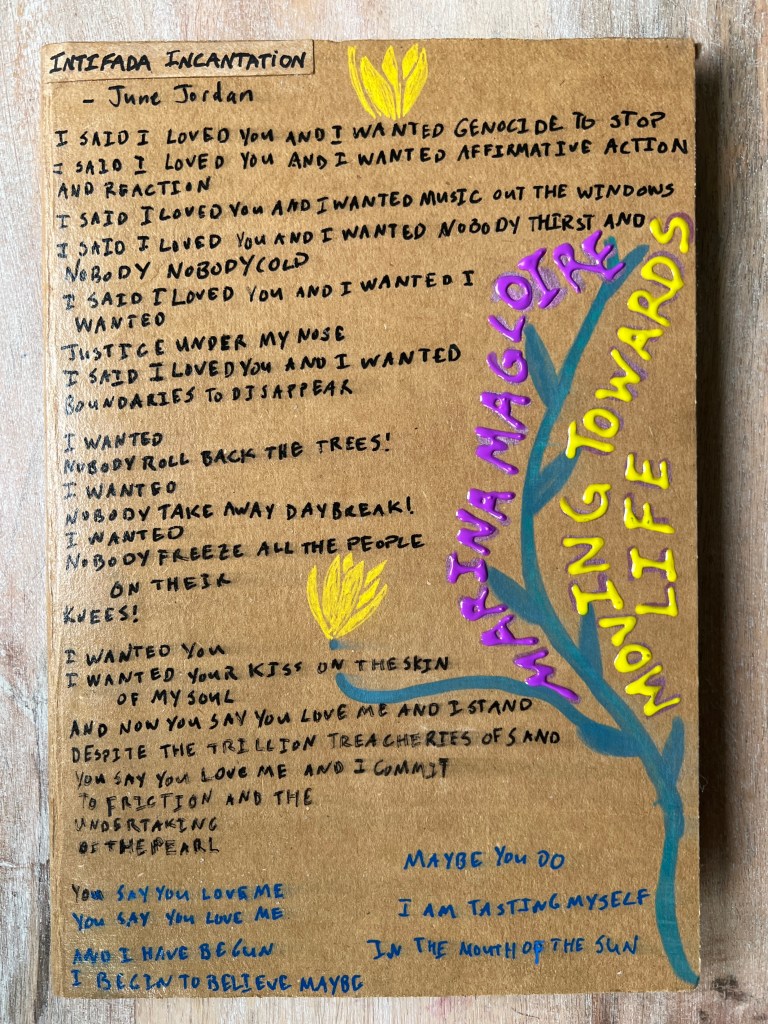 INTIFADA INCANTATION
- June Jordan
I SAID I LOVED YOU AND I WANTED GENOCIDE TO STOP
I SAID I LOVED YOU AND I WANTED AFFIRMATIVE ACTION
AND REACTION
I SAID I LOVED YOU AND I WANTED MUSIC OUT THE WINDOWS
I SAID I LOVED YOU AND I WANTED NOBODY THIRST AND
NOBODY NOBODY COLD
I SAID I LOVED YOU AND I WANTED I
WANTED
JUSTICE UNDER MY NOSE
I SAID I LOVED YOU AND I WANTED
BOUNDARIES TO DISAPPEAR
I WANTED
NOBODY ROLL BACK THE TREES!
I WANTED
NOBODY TAKE AWAY DAYBREAK!
I WANTED
NOBODY FREEZE ALL THE PEOPLE
ON THEIR
KNEES!
I WANTED YOU
I WANTED YOUR KISS ON THE SKIN
OF MY SOUL
AND NOW YOU SAY YOU LOVE ME AND I STAND
DESPITE THE TRILLION TREACHERIES OF SAND
YOU SAY YOU LOVE ME AND I COMMIT
TO FRICTION AND THE
UNDERTAKING
OF THE PEARL
YOU SAY YOU LOVE ME
YOU SAY YOU LOVE ME
AND I HAVE BEGUN
I BEGIN TO BELIEVE MAYBE
MAYBE YOU DO
I AM TASTING MYSELF
IN THE MOUTH OF THE SUN
MARINA MAGLOIRE
MOVING TOWARDS
LIFE